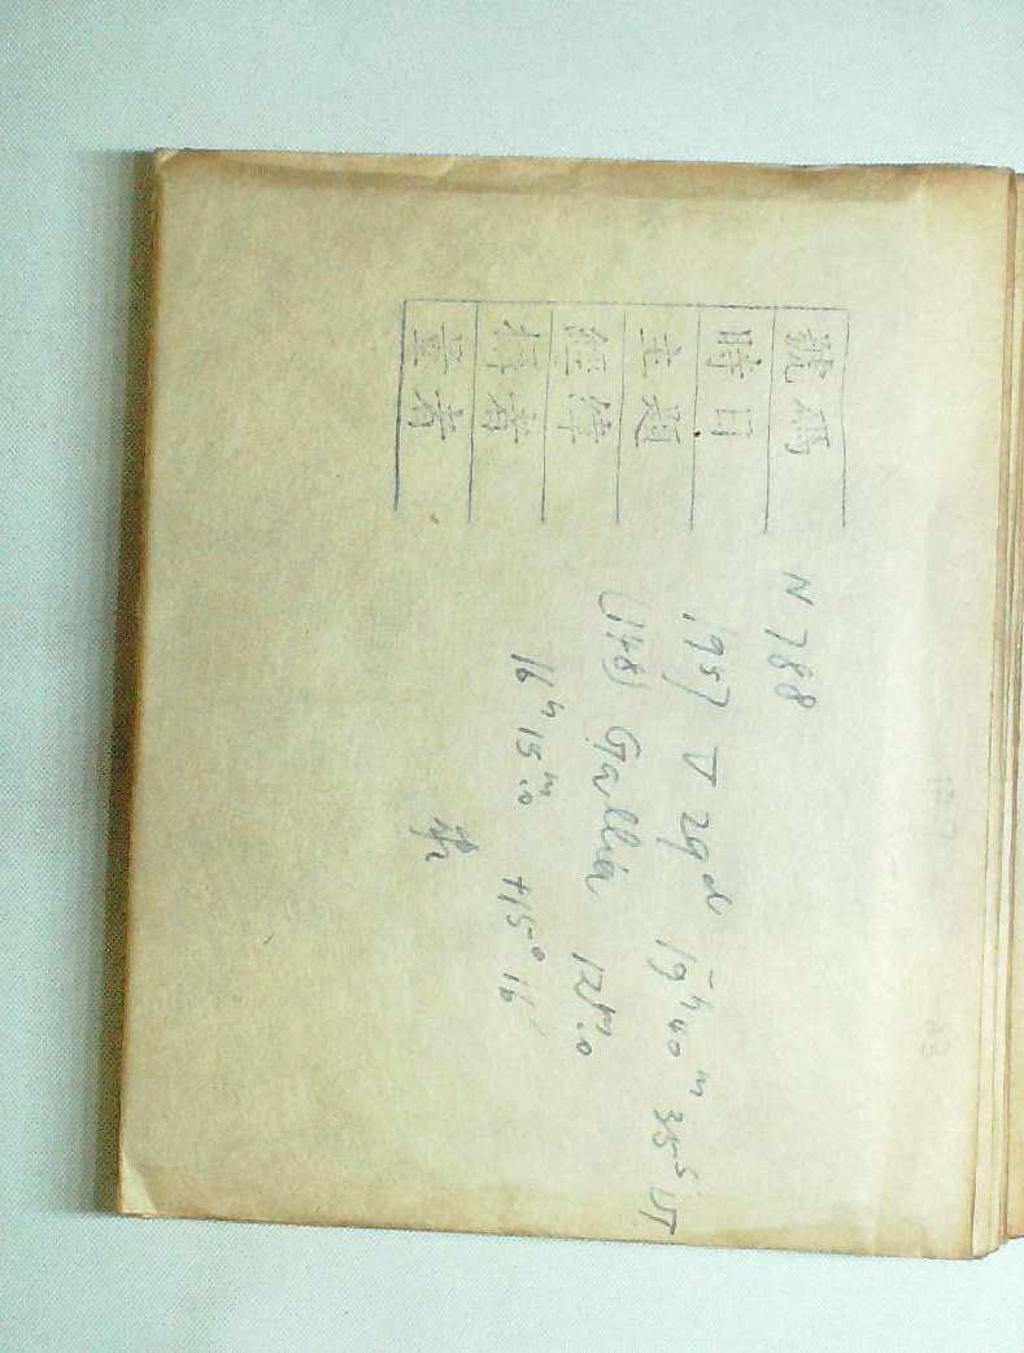 號碼 N 788
時日 1957 V 29ᵈ 19ʰ40ᵐ35ˢ UT
主題 (148) Gallia 12ᵐ.0
經緯 16ʰ15ᵐ.0 +15° 16′
攝者
量者